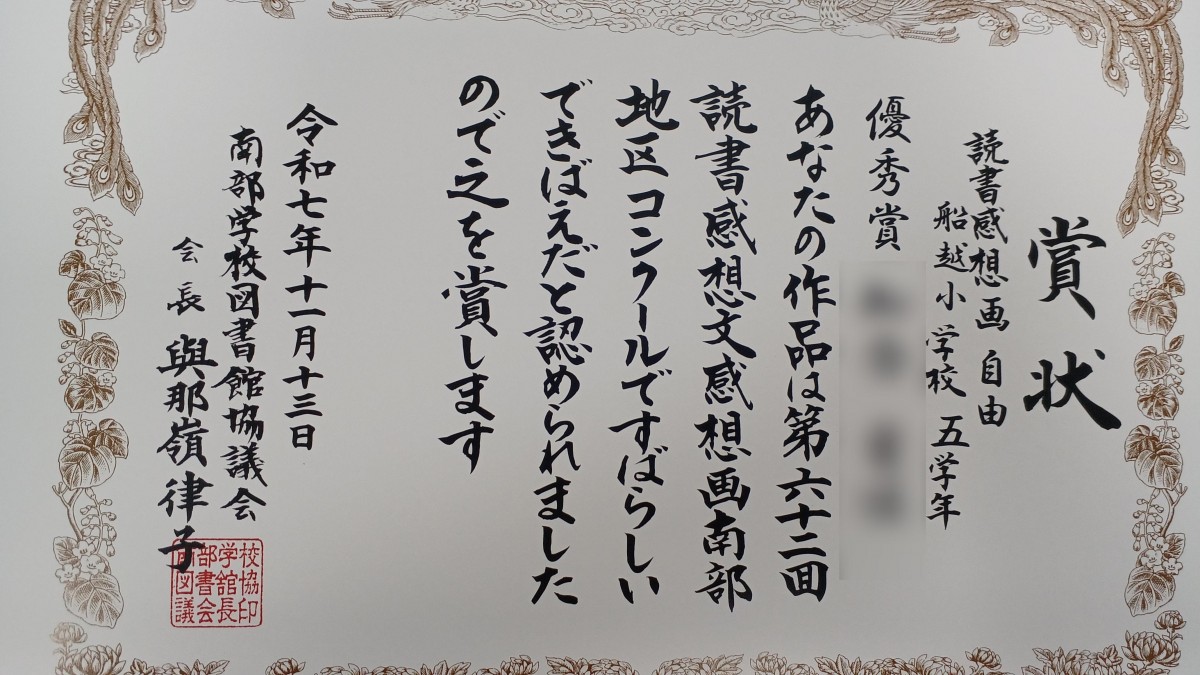 賞状
読書感想画 自由
船越小学校 五学年
優秀賞
あなたの作品は第六十二回
読書感想文感想画南部
地区コンクールですばらしい
できばえだと認められました
ので之を賞します
令和七年十一月十三日
南部学校図書館協議会
会長 與那嶺律子